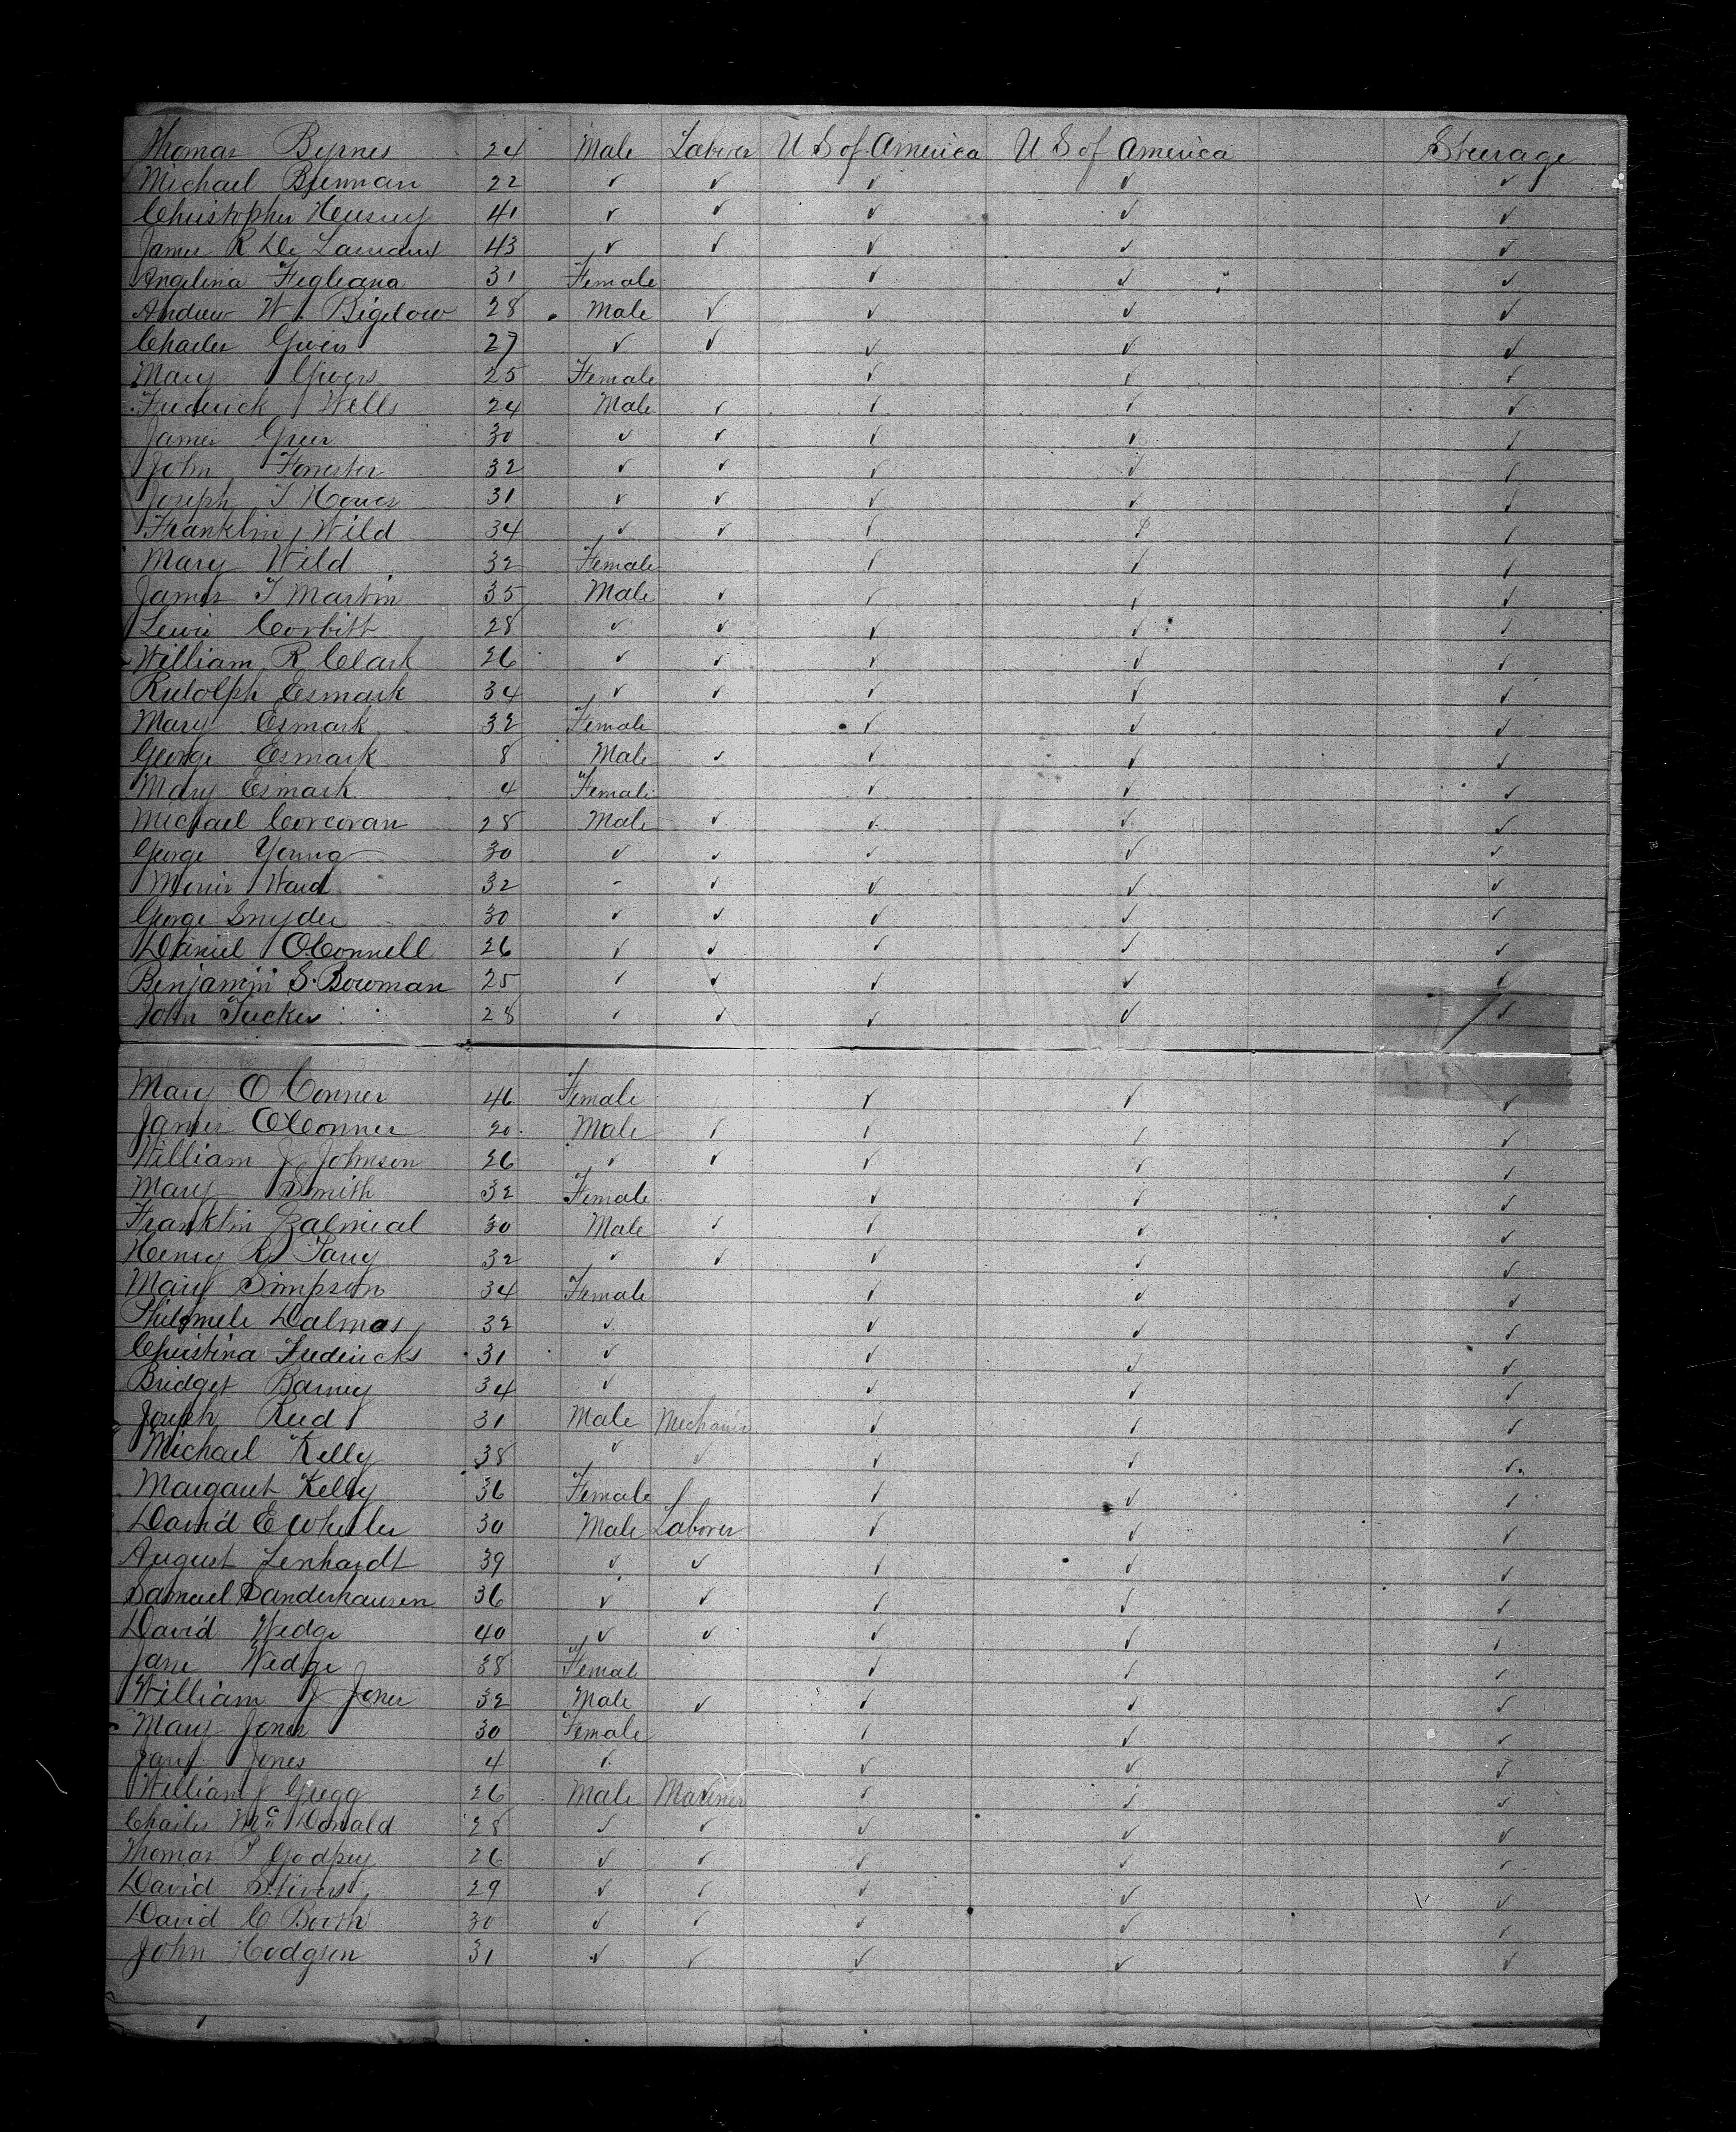 Thomas Byrnes 24 Male Laborer U S of America U S of America Steerage
Michael Brennan 22 ✓ ✓ ✓ ✓ ✓
Christopher 41 ✓ ✓ ✓ ✓ ✓
James R De 43 ✓ ✓ ✓ ✓ ✓
Angelina Fegleana 31 Female ✓ ✓ ✓
Andrew W. Bigelow 28 Male ✓ ✓ ✓ ✓
Charles 27 ✓ ✓ ✓ ✓ ✓
Mary 25 Female ✓ ✓ ✓
Frederick Wells 24 Male ✓ ✓ ✓ ✓
James Greer 30 ✓ ✓ ✓ ✓ ✓
John Forrester 32 ✓ ✓ ✓ ✓ ✓
Joseph T 31 ✓ ✓ ✓ ✓ ✓
Franklin Wild 34 ✓ ✓ ✓ ✓ ✓
Mary Wild 32 Female ✓ ✓ ✓
James T Martin 35 Male ✓ ✓ ✓ ✓
Lewis Corbitt 28 ✓ ✓ ✓ ✓ ✓
William R Clark 26 ✓ ✓ ✓ ✓ ✓
Rudolph Esmark 34 ✓ ✓ ✓ ✓ ✓
Mary Esmark 32 Female ✓ ✓ ✓
George Esmark 8 Male ✓ ✓ ✓ ✓
Mary Esmark 4 Female ✓ ✓ ✓
Michael Corcoran 28 Male ✓ ✓ ✓ ✓
George Young 30 ✓ ✓ ✓ ✓ ✓
Morris Ward 32 - ✓ ✓ ✓ ✓
George Snyder 30 ✓ ✓ ✓ ✓ ✓
Daniel O'Connell 26 ✓ ✓ ✓ ✓ ✓
Benjamin S. Bowman 25 ✓ ✓ ✓ ✓ ✓
John Tucker 28 ✓ ✓ ✓ ✓ ✓
Mary O Conner 46 Female ✓ ✓ ✓
James O'Conner 20 Male ✓ ✓ ✓ ✓
William J Johnson 26 ✓ ✓ ✓ ✓ ✓
Mary Smith 32 Female ✓ ✓ ✓
Franklin 30 Male ✓ ✓ ✓ ✓
Henry R 32 ✓ ✓ ✓ ✓ ✓
Mary Simpson 34 Female ✓ ✓ ✓
Philomele Dalmas 32 ✓ ✓ ✓ ✓
Christina Fredericks 31 ✓ ✓ ✓ ✓
Bridget Barney 34 ✓ ✓ ✓ ✓
Joseph Reed 31 Male Mechanic ✓ ✓ ✓
Michael Kelly 38 ✓ ✓ ✓ ✓ ✓
Margaret Kelly 36 Female ✓ ✓ ✓
David E Wheeler 30 Male Laborer ✓ ✓ ✓
August Lenhardt 39 ✓ ✓ ✓ ✓ ✓
Samuel Sanderhausen 36 ✓ ✓ ✓ ✓ ✓
David Wedge 40 ✓ ✓ ✓ ✓ ✓
Jane Wedge 38 Female ✓ ✓ ✓
William J Jones 32 Male ✓ ✓ ✓ ✓
Mary Jones 30 Female ✓ ✓ ✓
Jane Jones 4 ✓ ✓ ✓ ✓
William J Gregg 26 Male Mariner ✓ ✓ ✓
Charles Mc Donald 28 ✓ ✓ ✓ ✓ ✓
Thomas P Godfrey 26 ✓ ✓ ✓ ✓ ✓
David Stivers 29 ✓ ✓ ✓ ✓ ✓
David C Booth 30 ✓ ✓ ✓ ✓ ✓
John Hodgson 31 ✓ ✓ ✓ ✓ ✓